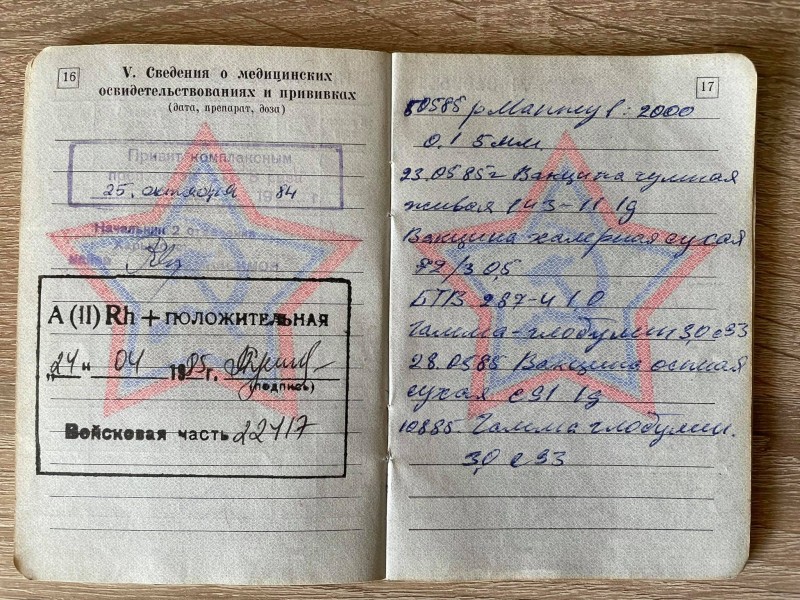 16
V. Сведения о медицинских
освидетельствованиях и прививках
(дата, препарат, доза)
Привит комплексным
25. октября 1984 г.
Начальник 2 отделения
A (II) Rh + ПОЛОЖИТЕЛЬНАЯ
„24“ 04 1985 г.
(подпись)
Войсковая часть 22417
17
р Манту 1:2000
0,1 5мм
23.0585г Вакцина чумная
живая 143-11 1д
Вакцина холерная сухая
0,5
287-4 1,0
Гамма-глобулин 3,0 с 93
28.0585 Вакцина оспная
сухая с 91 1д
10885 Гамма глобулин.
3,0 с 93